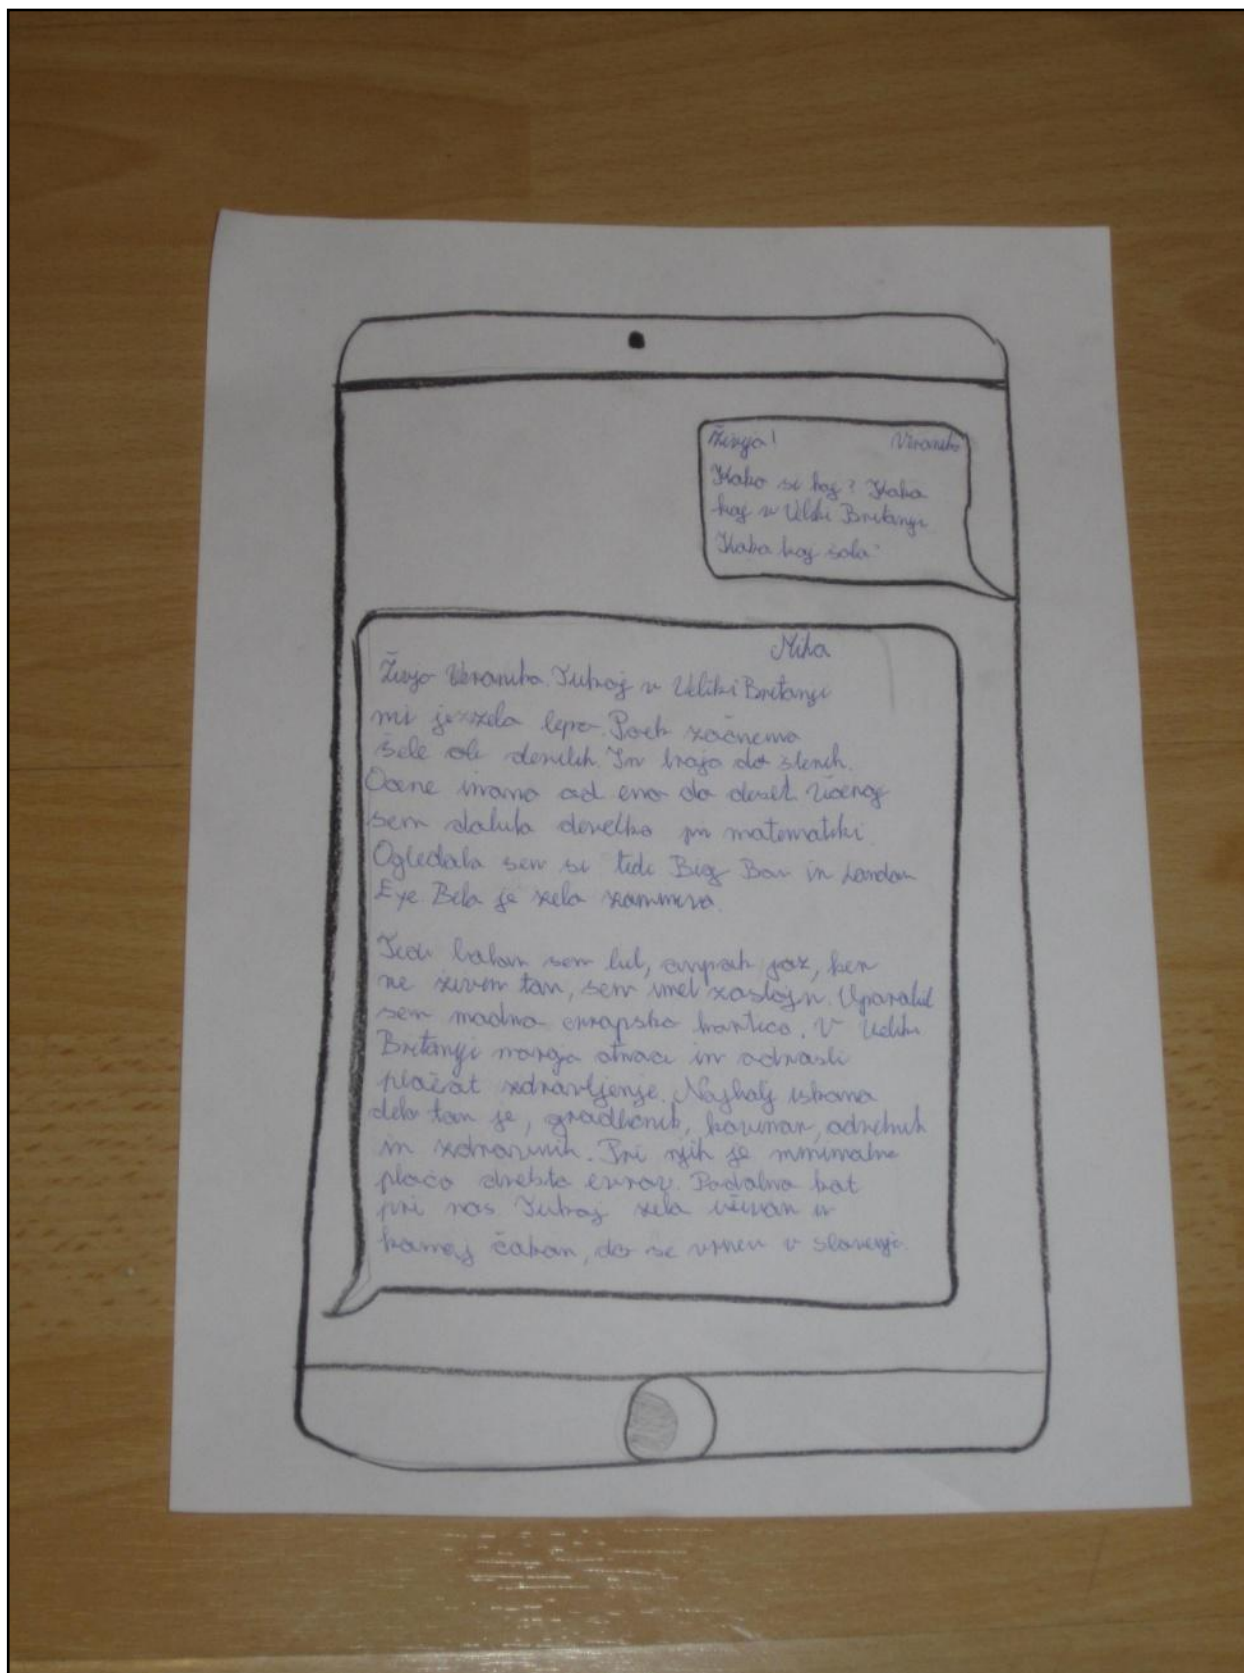 Živjo! Veronika
Kako si kaj? Kako
kaj v Veliki Britanji
Kako kaj šola?
Miha
Živjo Veronika. Tukaj v Veliki Britanji
mi je zelo lepo. Pouk začnemo
šele ob devetih. In traja do štirih.
Ocene imamo od ena do deset Včeraj
sem dobila devetko pri matematiki.
Ogledala sem si tudi Big Ban in London
Eye. Bilo je zelo zanimivo.
Tudi bolan sem bil, ampak jaz, ker
ne živim tam, sem imel zastojn. Uporabil
sem modro evropsko kartico. V Veliki
Britanji morajo otroci in odrasli
plačat zdravljenje. Najbolj iskano
delo tam je, gradbenik, kuhar, odvetnik
in zdravnik. Pri njih je minimalna
plača evrov. Podobno kot
pri nas. Tukaj zelo uživam in
komaj čakam, da se vrnem v slovenijo.